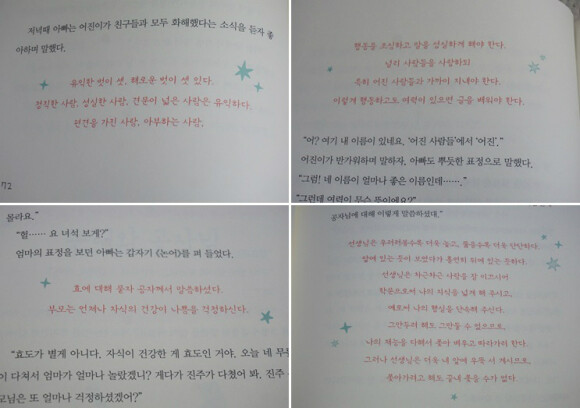 저녁때 아빠는 어진이가 친구들과 모두 화해했다는 소식을 듣자 좋
아하며 말했다.
유익한 벗이 셋, 해로운 벗이 셋 있다.
정직한 사람, 성실한 사람, 견문이 넓은 사람은 유익하다.
편견을 가진 사람, 아부하는 사람,
72
행동을 조심하고 말을 성실하게 해야 한다.
널리 사람들을 사랑하되
특히 어진 사람들과 가까이 지내야 한다.
이렇게 행동하고도 여력이 있으면 글을 배워야 한다.
“어? 여기 내 이름이 있네요. ‘어진 사람들’에서 ‘어진’.”
어진이가 반가워하며 말하자, 아빠도 뿌듯한 표정으로 말했다.
“그럼! 네 이름이 얼마나 좋은 이름인데…….”
“그런데 여력이 무슨 뜻이에요?”
몰라요.”
“험…… 요 녀석 보게?”
엄마의 표정을 보던 아빠는 갑자기 《논어》를 펴 들었다.
효에 대해 묻자 공자께서 말씀하셨다.
부모는 언제나 자식의 건강이 나쁠을 걱정하신다.
“효도가 별게 아니다. 자식이 건강한 게 효도인 거야. 오늘 네 무
이 다쳐서 엄마가 얼마나 놀랐겠니? 게다가 진주가 다쳤어 봐. 진주
모님은 또 얼마나 걱정하셨겠어?”
공자님에 대해 이렇게 말씀하셨대.”
선생님은 우러러볼수록 더욱 높고, 뚫을수록 더욱 단단하다.
앞에 있는 듯이 보였다가 홀연히 뒤에 있는 듯하다.
선생님은 차근차근 사람을 잘 이끄시어
학문으로써 나의 지식을 넓게 해 주시고,
예로써 나의 행실을 단속해 주신다.
그만두려 해도 그만둘 수 없으므로,
나의 재능을 다해서 좇아 배우고 따라가려 한다.
그러나 선생님은 더욱 내 앞에 우뚝 서 계시므로,
좇아가려고 해도 끝내 좇을 수가 없다.